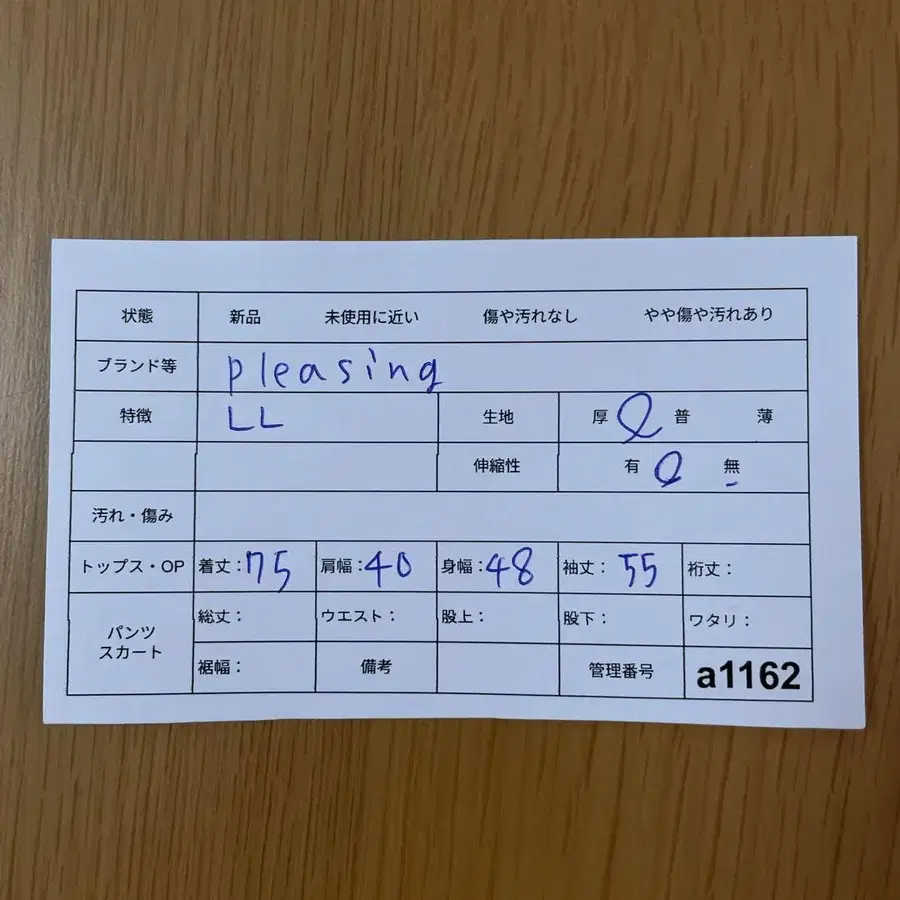 状態 新品 未使用に近い 傷や汚れなし やや傷や汚れあり
ブランド等 pleasing
特徴 LL 生地 厚 普 薄
伸縮性 有 無
汚れ・傷み
トップス・OP 着丈:75 肩幅:40 身幅:48 袖丈:55 裄丈:
パンツ スカート 総丈: ウエスト: 股上: 股下: ワタリ:
裾幅: 備考 管理番号 a1162